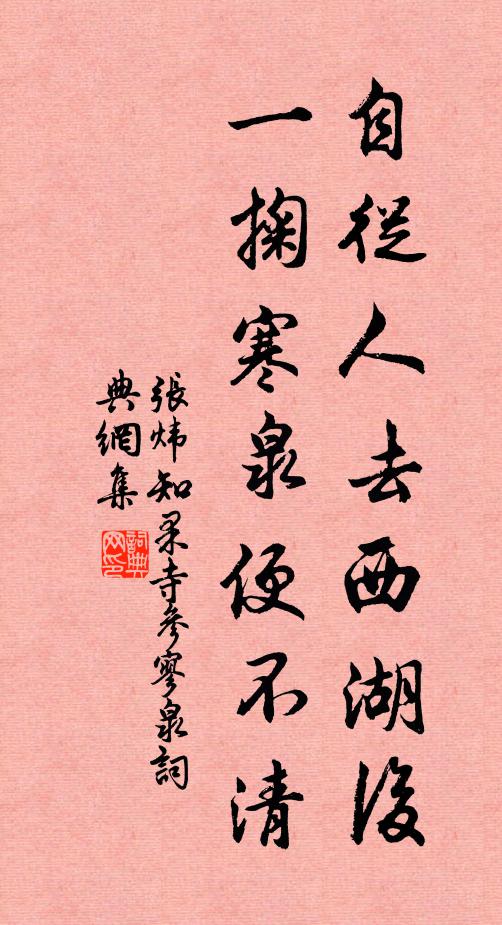 自從人去西湖後
一掬寒泉便不清
張煒知果寺參寥泉詞
典網集
詞典
网印